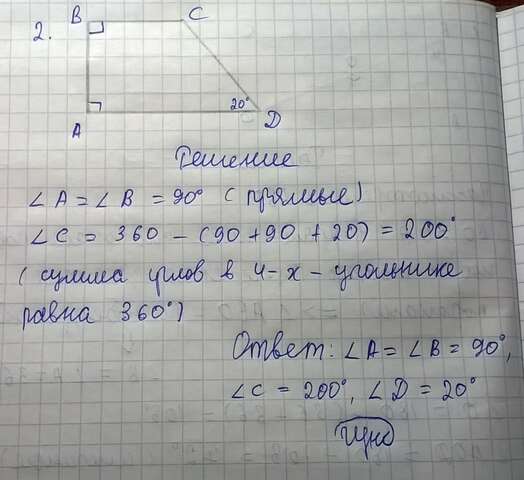 2.
B
C
20°
A
D
Решение
∠A = ∠B = 90° (прямые)
∠C = 360 - (90 + 90 + 20) = 200°
(сумма углов в 4-х-угольнике
равна 360°)
Ответ: ∠A = ∠B = 90°,
∠C = 200°, ∠D = 20°